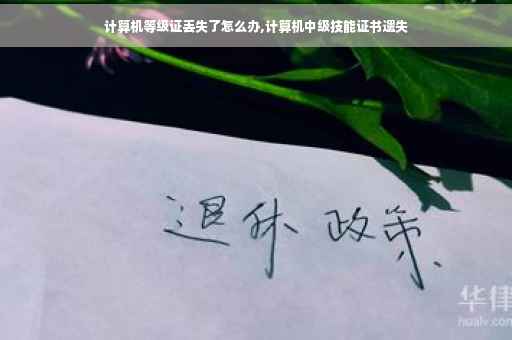 计算机等级证丢失了怎么办,计算机中级技能证书遗失
退休 政策
华律
hualv.com